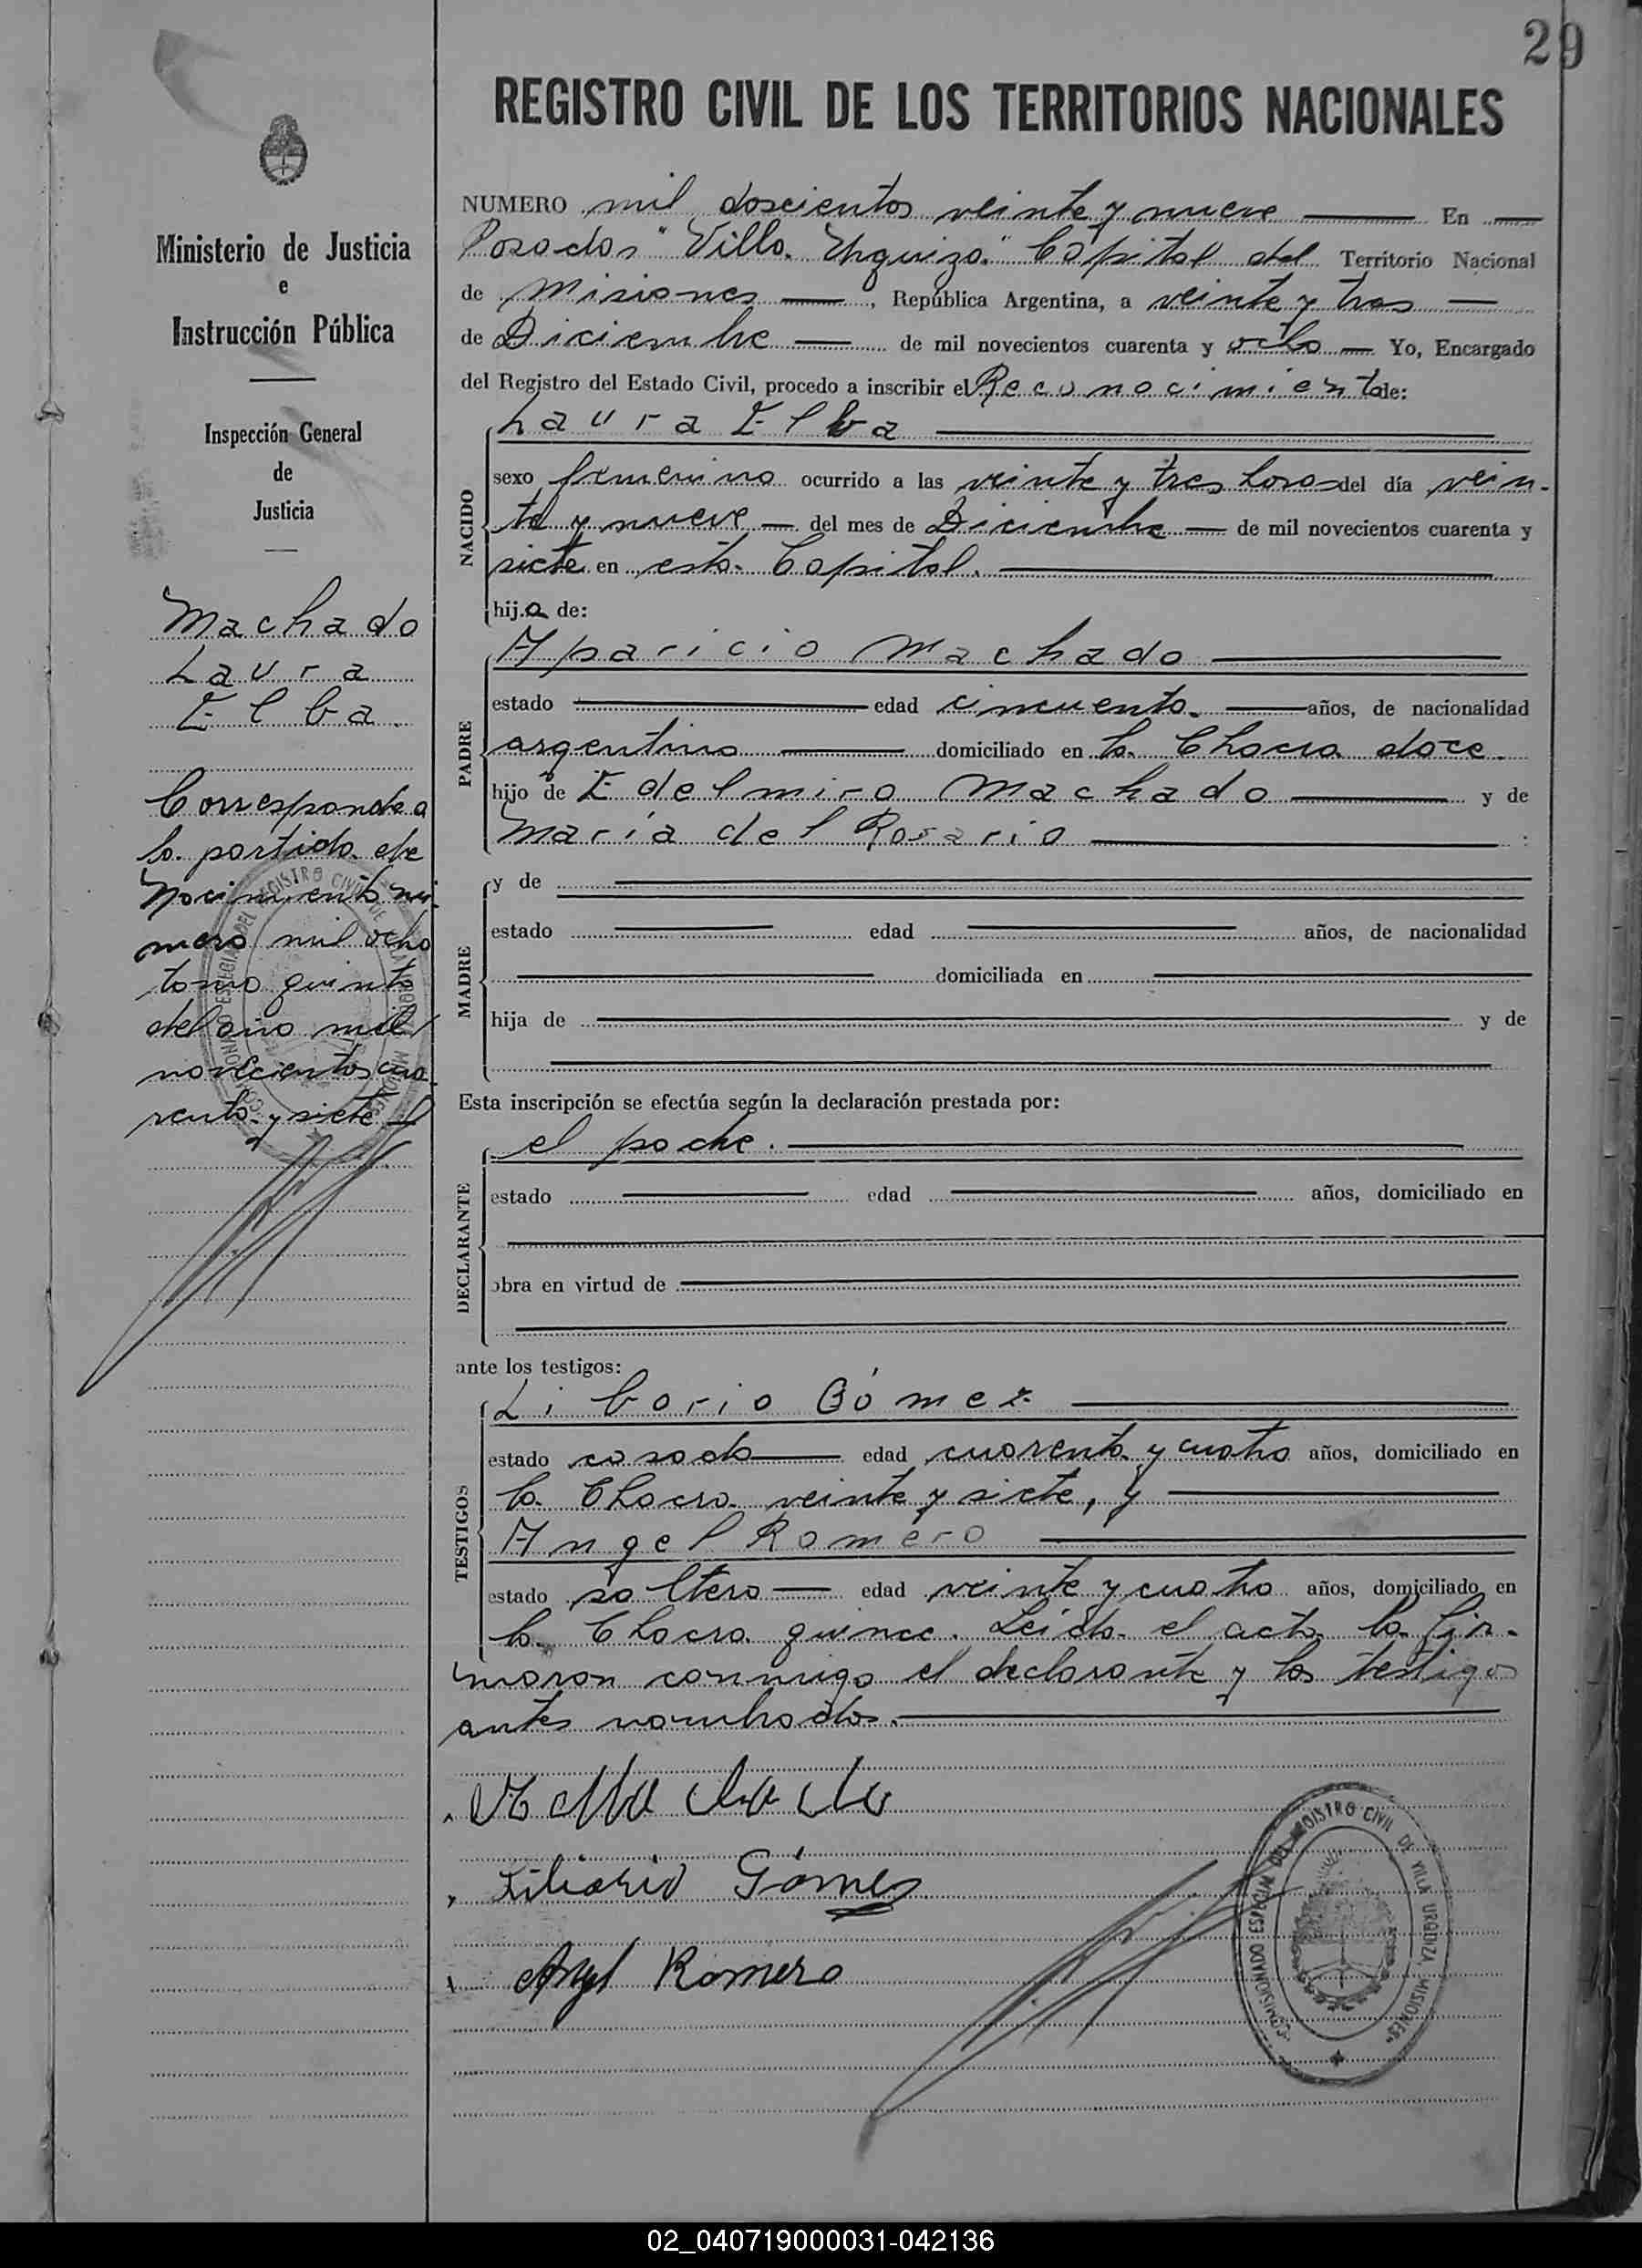 29
REGISTRO CIVIL DE LOS TERRITORIOS NACIONALES
Ministerio de Justicia
e
Instrucción Pública
Inspección General
de
Justicia
Machado
Laura
Elba
Corresponde a
la partida de
Nacimiento nú-
mero mil ocho
tomo quinto
del año mil
novecientos cua-
renta y siete
NUMERO mil doscientos veinte y nueve En
Posadas "Villa Urquiza" Capital del Territorio Nacional
de Misiones, República Argentina, a veinte y tres
de Diciembre de mil novecientos cuarenta y ocho Yo, Encargado
del Registro del Estado Civil, procedo a inscribir el Reconocimiento de:
NACIDO
Laura Elba
sexo femenino ocurrido a las veinte y tres horas del día vein-
te y nueve del mes de Diciembre de mil novecientos cuarenta y
siete en esta Capital.
hija de:
PADRE
Aparicio Machado
estado edad cincuenta años, de nacionalidad
argentino domiciliado en la Chacra doce
hijo de Edelmiro Machado y de
María del Rosario
MADRE
y de
estado edad años, de nacionalidad
domiciliada en
hija de y de
Esta inscripción se efectúa según la declaración prestada por:
DECLARANTE
el padre.
estado edad años, domiciliado en
obra en virtud de
ante los testigos:
TESTIGOS
Liborio Gómez
estado casado edad cuarenta y cuatro años, domiciliado en
la Chacra veinte y siete, y
Angel Romero
estado soltero edad veinte y cuatro años, domiciliado en
la Chacra quince. Leída el acta la fir-
maron conmigo el declarante y los testigos
antes nombrados.
Gómes
Angel Romero
COMISIONADO ESPECIAL DEL REGISTRO CIVIL DE VILLA URQUIZA, MISIONES
02_040719000031-042136